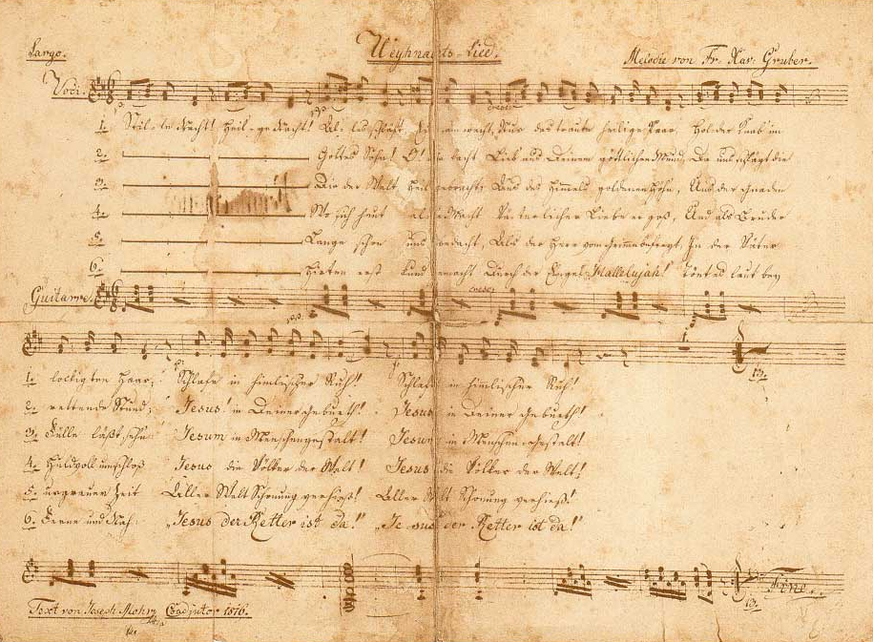 Largo. Weyhnachts-Lied. Melodie von Fr. Xav. Gruber.
Voci.
1. Stil-le Nacht! Heil-ge Nacht! Al-les schläft, Ein-sam wacht, Nur das traute heilige Paar, Holder Knab im
2. Gottes Sohn! O! wie lacht Lieb aus Deinem göttlichen Mund, Da uns schlägt die
3. Die der Welt Heil gebracht, Aus des Himmels goldenen Höhn, Aus der Gnaden
4. Wo sich heut alle Macht Väterlicher Liebe ergoß, Und als Bruder
5. Lange schon uns bedacht, Als der Herr vom Grimme befreyt, In der Väter
6. Hirten erst kund gemacht Durch der Engel Hallelujah! Tönt es laut bey
Guitarre.
1. lockigten Haar; Schlafe in himlischer Ruh! Schlafe in himmlischer Ruh!
2. rettende Stund; Jesus! in Deiner Geburth! Jesus in Deiner Geburth!
3. Fülle läßt sehn Jesum in Menschengestalt! Jesum in Menschengestalt!
4. Huldvoll umschloß Jesus die Völker der Welt! Jesus die Völker der Welt!
5. urgrauer Zeit Aller Welt Schonung verhieß! Aller Welt Schonung verhieß!
6. Ferne und Nah: „Jesus der Retter ist da!" „Jesus der Retter ist da!"
Fine.
Text von Joseph Mohr Coadjutor 1816.